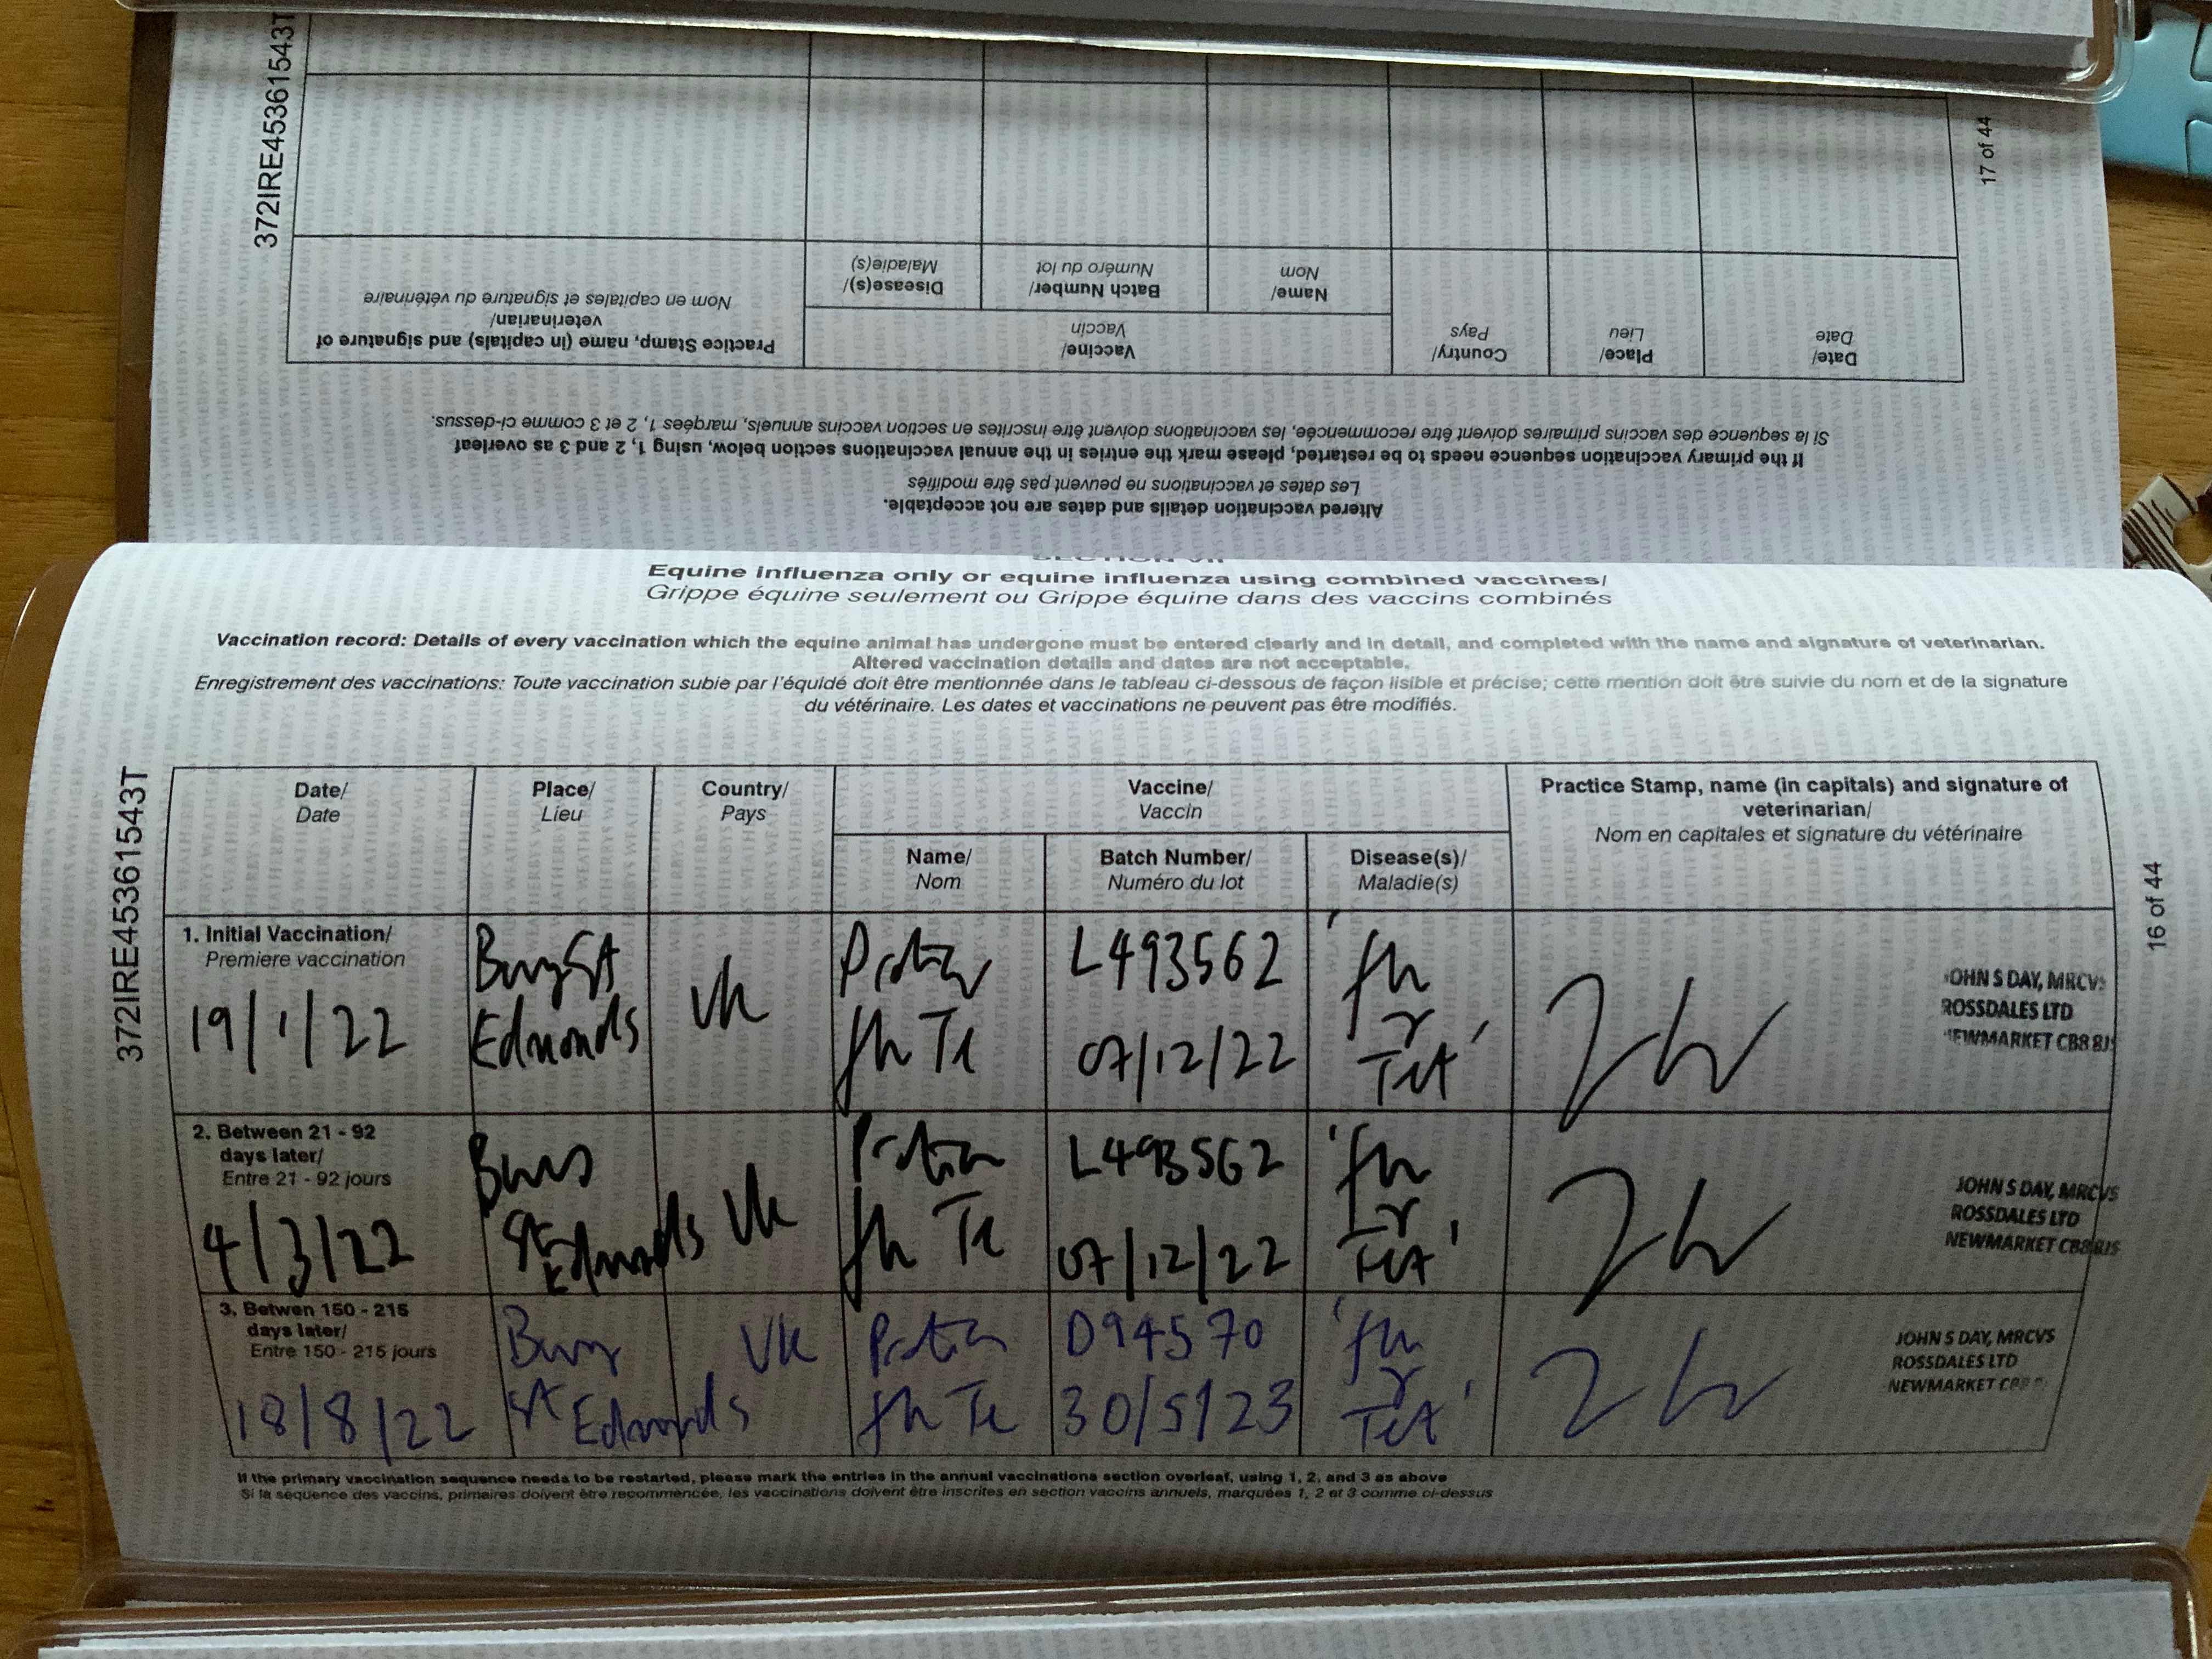 372IRE45361543T
17 of 44
Altered vaccination details and dates are not acceptable.
Les dates et vaccinations ne peuvent pas être modifiés
If the primary vaccination sequence needs to be restarted, please mark the entries in the annual vaccinations section below, using 1, 2 and 3 as overleaf
Si la sequence des vaccins primaires doivent être recommencée, les vaccinations doivent être inscrites en section vaccins annuels, marquées 1, 2 et 3 comme ci-dessus.
Date/
Date
Place/
Lieu
Country/
Pays
Vaccine/
Vaccin
Name/
Nom
Batch Number/
Numéro du lot
Disease(s)/
Maladie(s)
Practice Stamp, name (in capitals) and signature of
veterinarian/
Nom en capitales et signature du vétérinaire
Equine influenza only or equine influenza using combined vaccines/
Grippe équine seulement ou Grippe équine dans des vaccins combinés
Vaccination record: Details of every vaccination which the equine animal has undergone must be entered clearly and in detail, and completed with the name and signature of veterinarian.
Altered vaccination details and dates are not acceptable.
Enregistrement des vaccinations: Toute vaccination subie par l'équidé doit être mentionnée dans le tableau ci-dessous de façon lisible et précise; cette mention doit être suivie du nom et de la signature
du vétérinaire. Les dates et vaccinations ne peuvent pas être modifiés.
372IRE45361543T
16 of 44
Date/
Date
Place/
Lieu
Country/
Pays
Vaccine/
Vaccin
Name/
Nom
Batch Number/
Numéro du lot
Disease(s)/
Maladie(s)
Practice Stamp, name (in capitals) and signature of
veterinarian/
Nom en capitales et signature du vétérinaire
1. Initial Vaccination/
Premiere vaccination
19/1/22
Bury St
Edmonds
UK
Flu Te
L493562
07/12/22
'flu
Tet'
JOHN S DAY, MRCVS
ROSSDALES LTD
NEWMARKET CB8 8JS
2. Between 21 - 92
days later/
Entre 21 - 92 jours
4/3/22
Bury
St
Edmonds
UK
Flu Te
L493562
07/12/22
'flu
Tet'
JOHN S DAY, MRCVS
ROSSDALES LTD
NEWMARKET CB8 8JS
3. Betwen 150 - 215
days later/
Entre 150 - 215 jours
18/8/22
Bury
St Edmonds
UK
Flu Te
D94570
30/5/23
'flu
Tet'
JOHN S DAY, MRCVS
ROSSDALES LTD
NEWMARKET
If the primary vaccination sequence needs to be restarted, please mark the entries in the annual vaccinations section overleaf, using 1, 2, and 3 as above
Si la séquence des vaccins, primaires doivent être recommencée, les vaccinations doivent être inscrites en section vaccins annuels, marquées 1, 2 et 3 comme ci-dessus